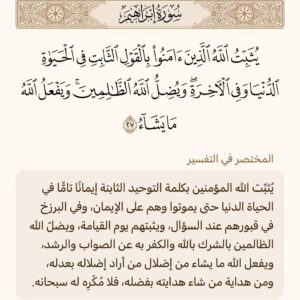 سُورَةُ إِبْرَاهِيمَ
يُثَبِّتُ ٱللَّهُ ٱلَّذِينَ ءَامَنُواْ بِٱلْقَوْلِ ٱلثَّابِتِ فِي ٱلْحَيَوٰةِ
ٱلدُّنْيَا وَفِي ٱلْأٓخِرَةِۖ وَيُضِلُّ ٱللَّهُ ٱلظَّٰلِمِينَۚ وَيَفْعَلُ ٱللَّهُ
مَا يَشَآءُ ٢٧
المختصر في التفسير
يُثبِّت الله المؤمنين بكلمة التوحيد الثابتة إيمانًا تامًّا في
الحياة الدنيا حتى يموتوا وهم على الإيمان، وفي البرزخ
في قبورهم عند السؤال، ويثبتهم يوم القيامة، ويضلّ الله
الظالمين بالشرك بالله والكفر به عن الصواب والرشد،
ويفعل الله ما يشاء من إضلال من أراد إضلاله بعدله،
ومن هداية من شاء هدايته بفضله، فلا مُكْرِه له سبحانه.